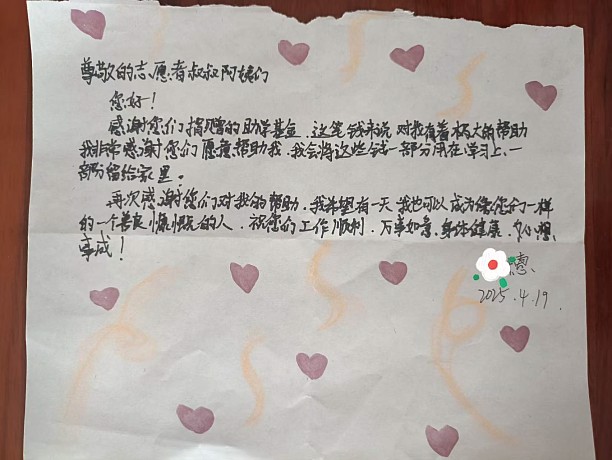 尊敬的志愿者叔叔阿姨们
您好！
感谢您们捐赠的助学基金，这笔钱来说对我有着极大的帮助
我非常感谢您们愿意帮助我，我会将这些钱一部分用在学习上，一
部分留给家里。
再次感谢您们对我的帮助，我希望有一天我也可以成为像您们一样
的一个善良慷慨的人，祝您们工作顺利，万事如意，身体健康，心想
事成！
憲
2025.4.19.